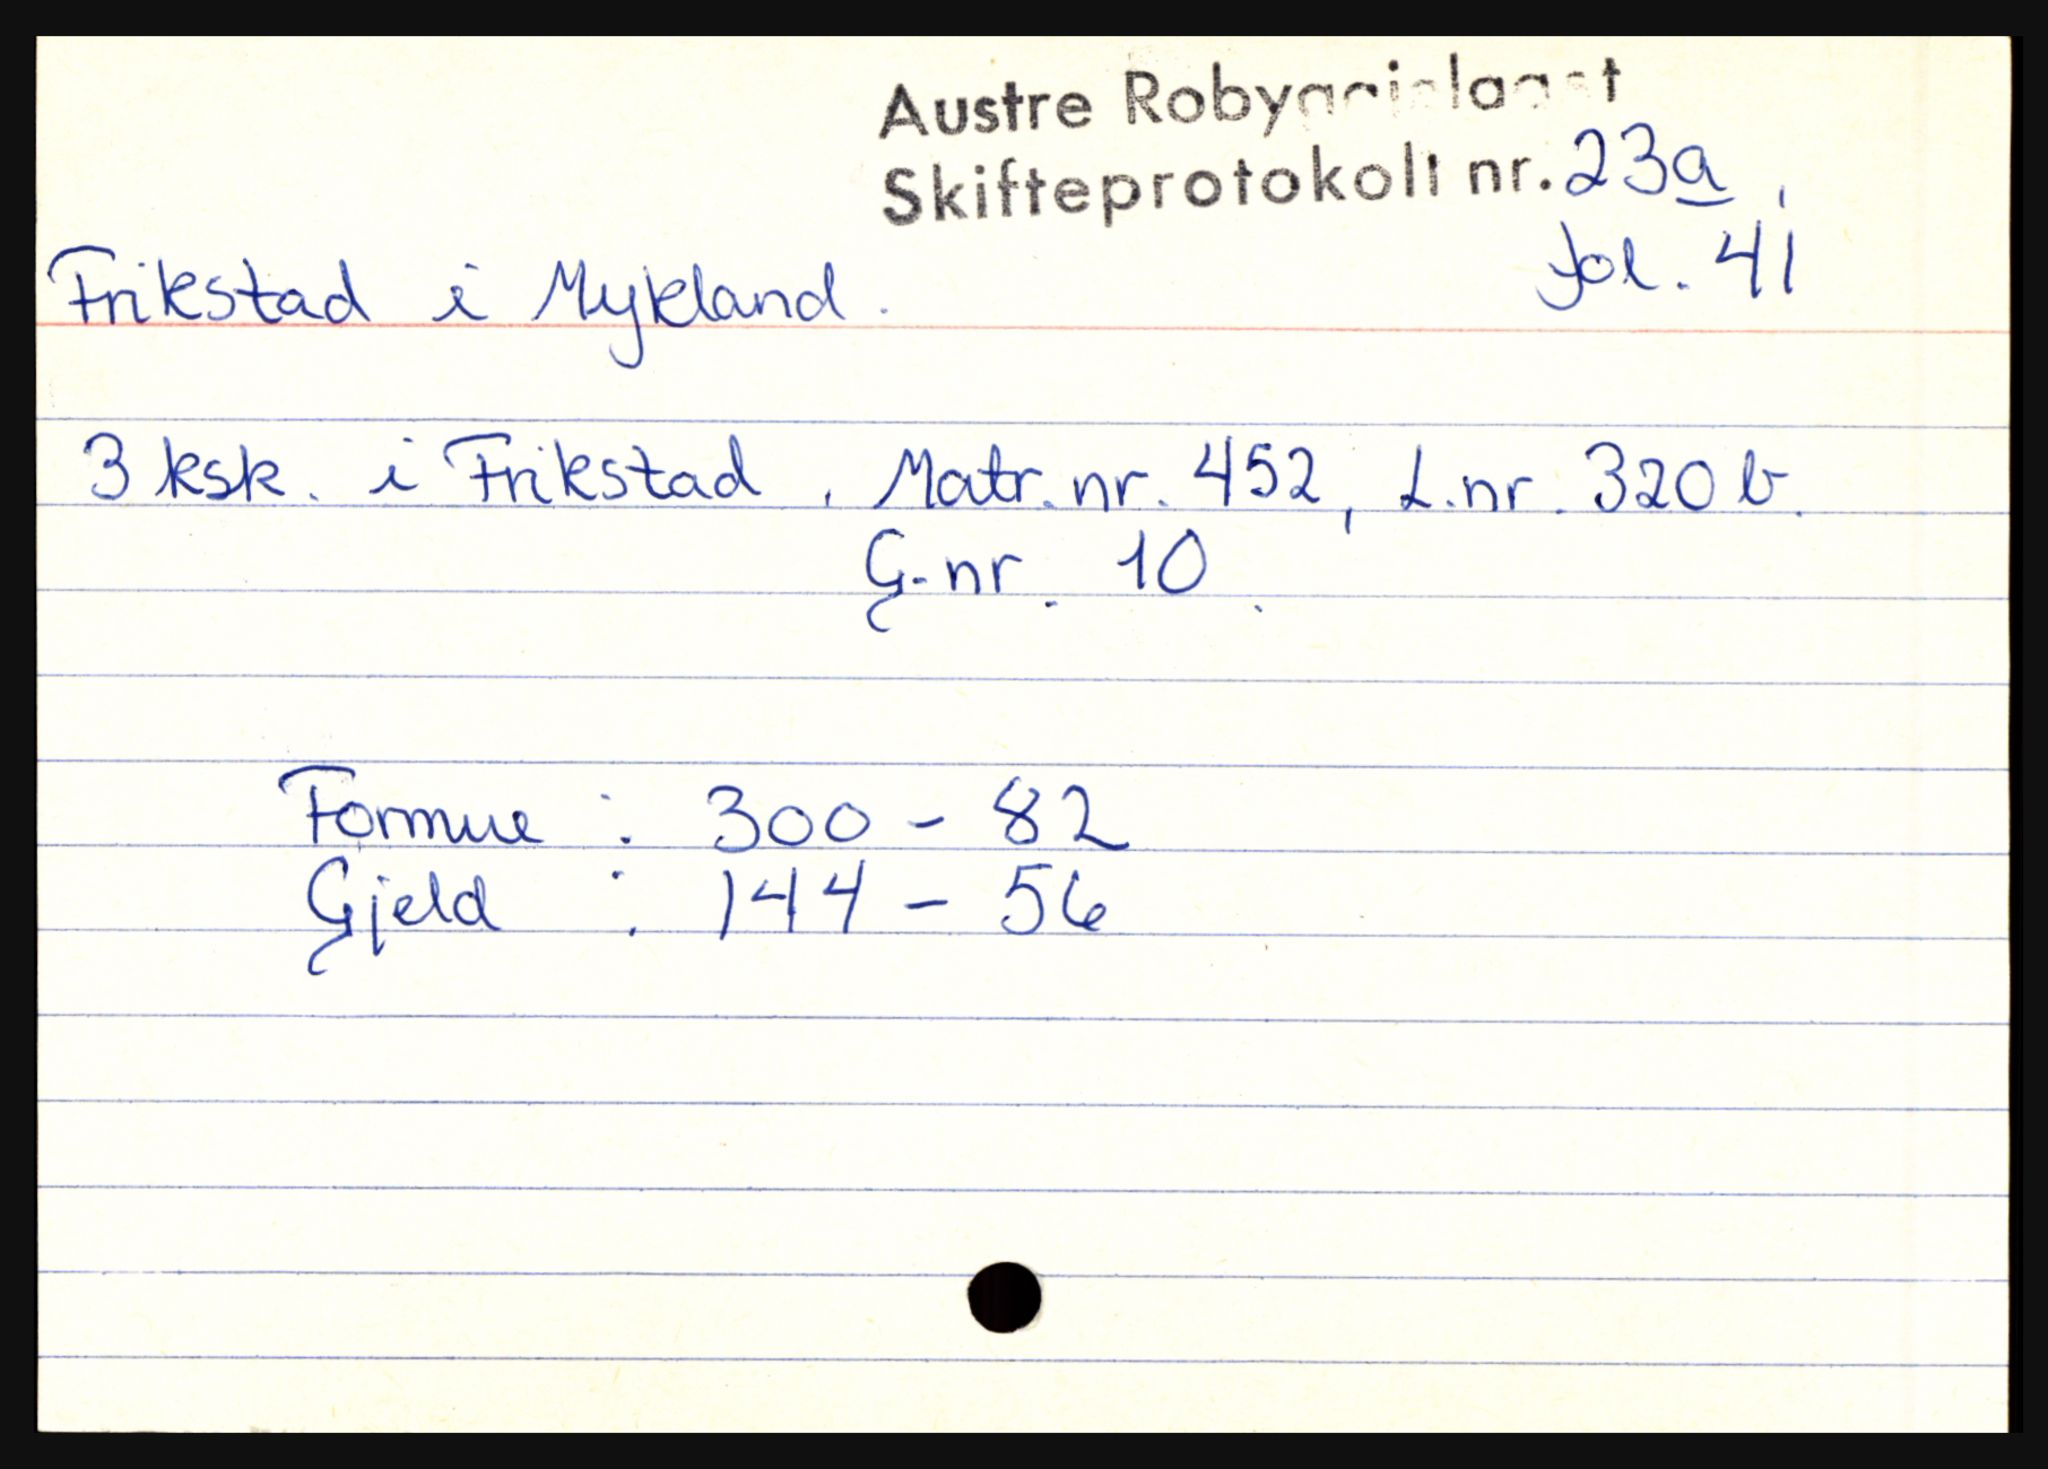 Austre Robyggjelaget
Skifteprotokoll nr. 23a,
fol. 41
Frikstad i Mykland.
3 ksk. i Frikstad, Matr. nr. 452, L.nr. 320 b.
G.nr. 10.
Formue : 300 - 82
Gjeld : 144 - 56